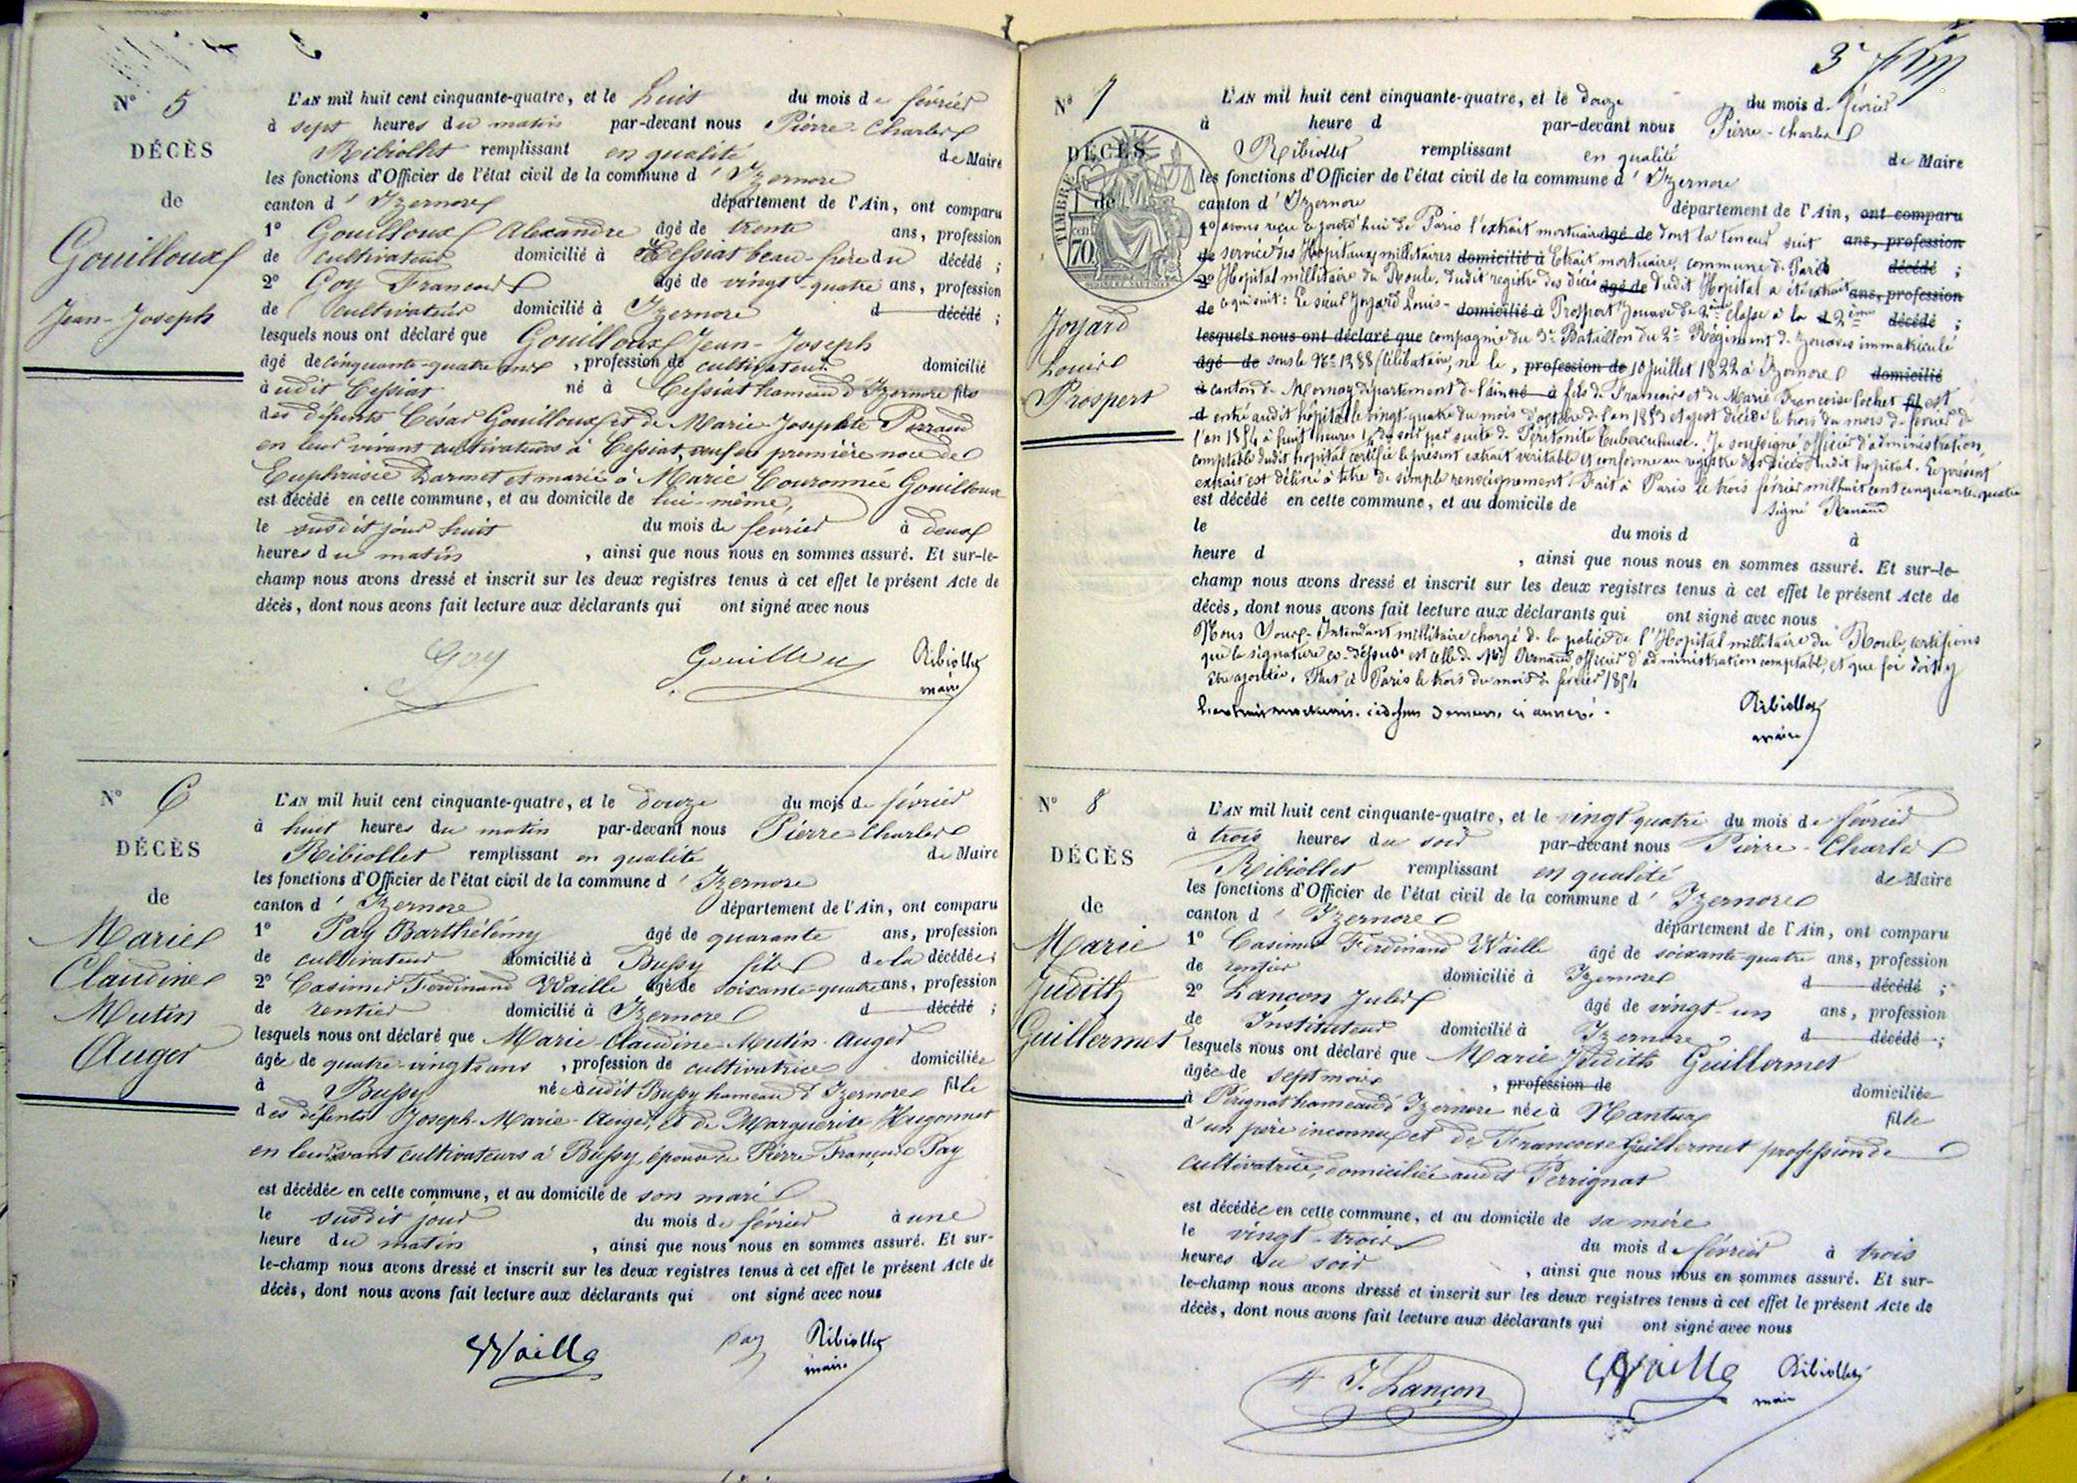 N° 5
DÉCÈS
de
Gouilloux
Jean-Joseph
L'AN mil huit cent cinquante-quatre, et le huit du mois de février
à sept heures du matin par-devant nous Pierre-Charles
Ribiollet remplissant en qualité de Maire
les fonctions d'Officier de l'état civil de la commune d'Izernore
canton d'Izernore département de l'Ain, ont comparu
1° Gouilloux Alexandre âgé de trente ans, profession
de cultivateur domicilié à Cessiat beau-frère du décédé ;
2° Goy François âgé de vingt-quatre ans, profession
de cultivateur domicilié à Izernore d décédé ;
lesquels nous ont déclaré que Gouilloux Jean-Joseph
âgé de cinquante-quatre ans, profession de cultivateur domicilié
à udit Cessiat né à Cessiat hameau d'Izernore fils
des défunts César Gouilloux et de Marie Josephte Perraud
en leur vivant cultivateurs à Cessiat, veuf en première noce de
Euphrasie Darmet et marié à Marie Couronnée Gouilloux
est décédé en cette commune, et au domicile de lui-même,
le susdit jour huit du mois de février à deux
heures du matin, ainsi que nous nous en sommes assuré. Et sur-le-
champ nous avons dressé et inscrit sur les deux registres tenus à cet effet le présent Acte de
décès, dont nous avons fait lecture aux déclarants qui ont signé avec nous
Goy Gouilloux Ribiollet
maire
N° 6
DÉCÈS
de
Marie
Claudine
Mutin
Auger
L'AN mil huit cent cinquante-quatre, et le douze du mois de février
à huit heures du matin par-devant nous Pierre Charles
Ribiollet remplissant en qualité de Maire
les fonctions d'Officier de l'état civil de la commune d'Izernore
canton d'Izernore département de l'Ain, ont comparu
1° Pay Barthélémy âgé de quarante ans, profession
de cultivateur domicilié à Bussy fils de la décédée ;
2° Casimir Ferdinand Waille âgé de soixante-quatre ans, profession
de rentier domicilié à Izernore d décédé ;
lesquels nous ont déclaré que Marie Claudine Mutin-Auger
âgée de quatre-vingts ans, profession de cultivatrice domiciliée
à Bussy née audit Bussy hameau d'Izernore fille
des défunts Joseph-Marie-Auger, et de Marguerite Hugonnet
en leur vivant cultivateurs à Bussy, épouse de Pierre François Pay
est décédée en cette commune, et au domicile de son mari
le susdit jour du mois de février à une
heure du matin, ainsi que nous nous en sommes assuré. Et sur-
le-champ nous avons dressé et inscrit sur les deux registres tenus à cet effet le présent Acte de
décès, dont nous avons fait lecture aux déclarants qui ont signé avec nous
Waille Pay Ribiollet
maire
3
N° 7
DÉCÈS
de
TIMBRE
70
Joyard
Louis
Prospert
L'AN mil huit cent cinquante-quatre, et le douze du mois de février
à heure d par-devant nous Pierre-Charles
Ribiollet remplissant en qualité de Maire
les fonctions d'Officier de l'état civil de la commune d'Izernore
canton d'Izernore département de l'Ain, ont comparu
1° avons reçu ce jourd'hui de Paris l'extrait mortuaire âgé de dont la teneur suit ans, profession
de service des Hopitaux militaires domicilié à Etrait mortuaire, commune de Paris décédé ;
2° Hopital millitaire du Roule. dudit registre des décès âgé de dudit Hopital a été extrait ans, profession
de ce qui suit : Le sieur Joyard Louis- domicilié à Prospert Zouave de 2ème classe à la d 2ème décédé ;
lesquels nous ont déclaré que compagnie du 3e Bataillon du 2e Régiment de Zouaves immatriculé
âgé de sous le N° 1288 Célibataire, né le, profession de 10 juillet 1822 à Izernore domicilié
à canton de Mornay département de l'ain né à fils de François et de Marie Françoise Cochet fil est
d entré audit hôpital le vingt quatre du mois d'octobre de l'an 1853 et y est décédé le trois du mois de février de
l'an 1854 à huit heures du soir par suite de Péritonite tuberculeuse. Je soussigné officier d'administration,
comptable dudit hopital certifie le présent extrait véritable et conforme au registre des décès dudit hopital. Le présent
extrait est délivré à titre de simple renseignement. Fait à Paris le trois février mil huit cent cinquante-quatre
est décédé en cette commune, et au domicile de signé Renaud
le du mois d à
heure d, ainsi que nous nous en sommes assuré. Et sur-le-
champ nous avons dressé et inscrit sur les deux registres tenus à cet effet le présent Acte de
décès, dont nous avons fait lecture aux déclarants qui ont signé avec nous
Nous Sous-Intendant millitaire chargé de la police de l'Hopital millitaire du Roule, certifions
que la signature ci-dessus est celle de Mr Renaud officier d'administration comptable, et que foi doit y
être ajoutée. Fait à Paris le trois du mois de février 1854
L'extrait mortuaire ci-dessus demeure ci annexé.
Ribiollet
maire
N° 8
DÉCÈS
de
Marie
Judith
Guillermet
L'AN mil huit cent cinquante-quatre, et le vingt quatre du mois de février
à trois heures du soir par-devant nous Pierre-Charles
Ribiollet remplissant en qualité de Maire
les fonctions d'Officier de l'état civil de la commune d'Izernore
canton d'Izernore département de l'Ain, ont comparu
1° Casimir Ferdinand Waille âgé de soixante-quatre ans, profession
de rentier domicilié à Izernore d décédé ;
2° Lançon Jules âgé de vingt-un ans, profession
de Instituteur domicilié à Izernore d décédé ;
lesquels nous ont déclaré que Marie Judith Guillermet
âgée de sept mois, profession de domiciliée
à Pérignat hameau d'Izernore née à Nantua fille
d'un père inconnu et de Françoise Guillermet profession de
cultivatrice, domiciliée audit Perrignat
est décédée en cette commune, et au domicile de sa mère
le vingt-trois du mois de février à trois
heures du soir, ainsi que nous nous en sommes assuré. Et sur-
le-champ nous avons dressé et inscrit sur les deux registres tenus à cet effet le présent Acte de
décès, dont nous avons fait lecture aux déclarants qui ont signé avec nous
J. Lançon Waille Ribiollet
maire